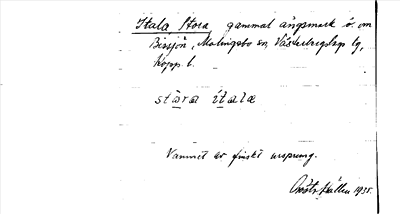 Itala, Stora gammal ängsmark ö. om
Bissjön, Malingsbo sn, Västerbergslags tg,
Kopp. l.
stㅤra itala
Namnet av finskt ursprung.
1935.